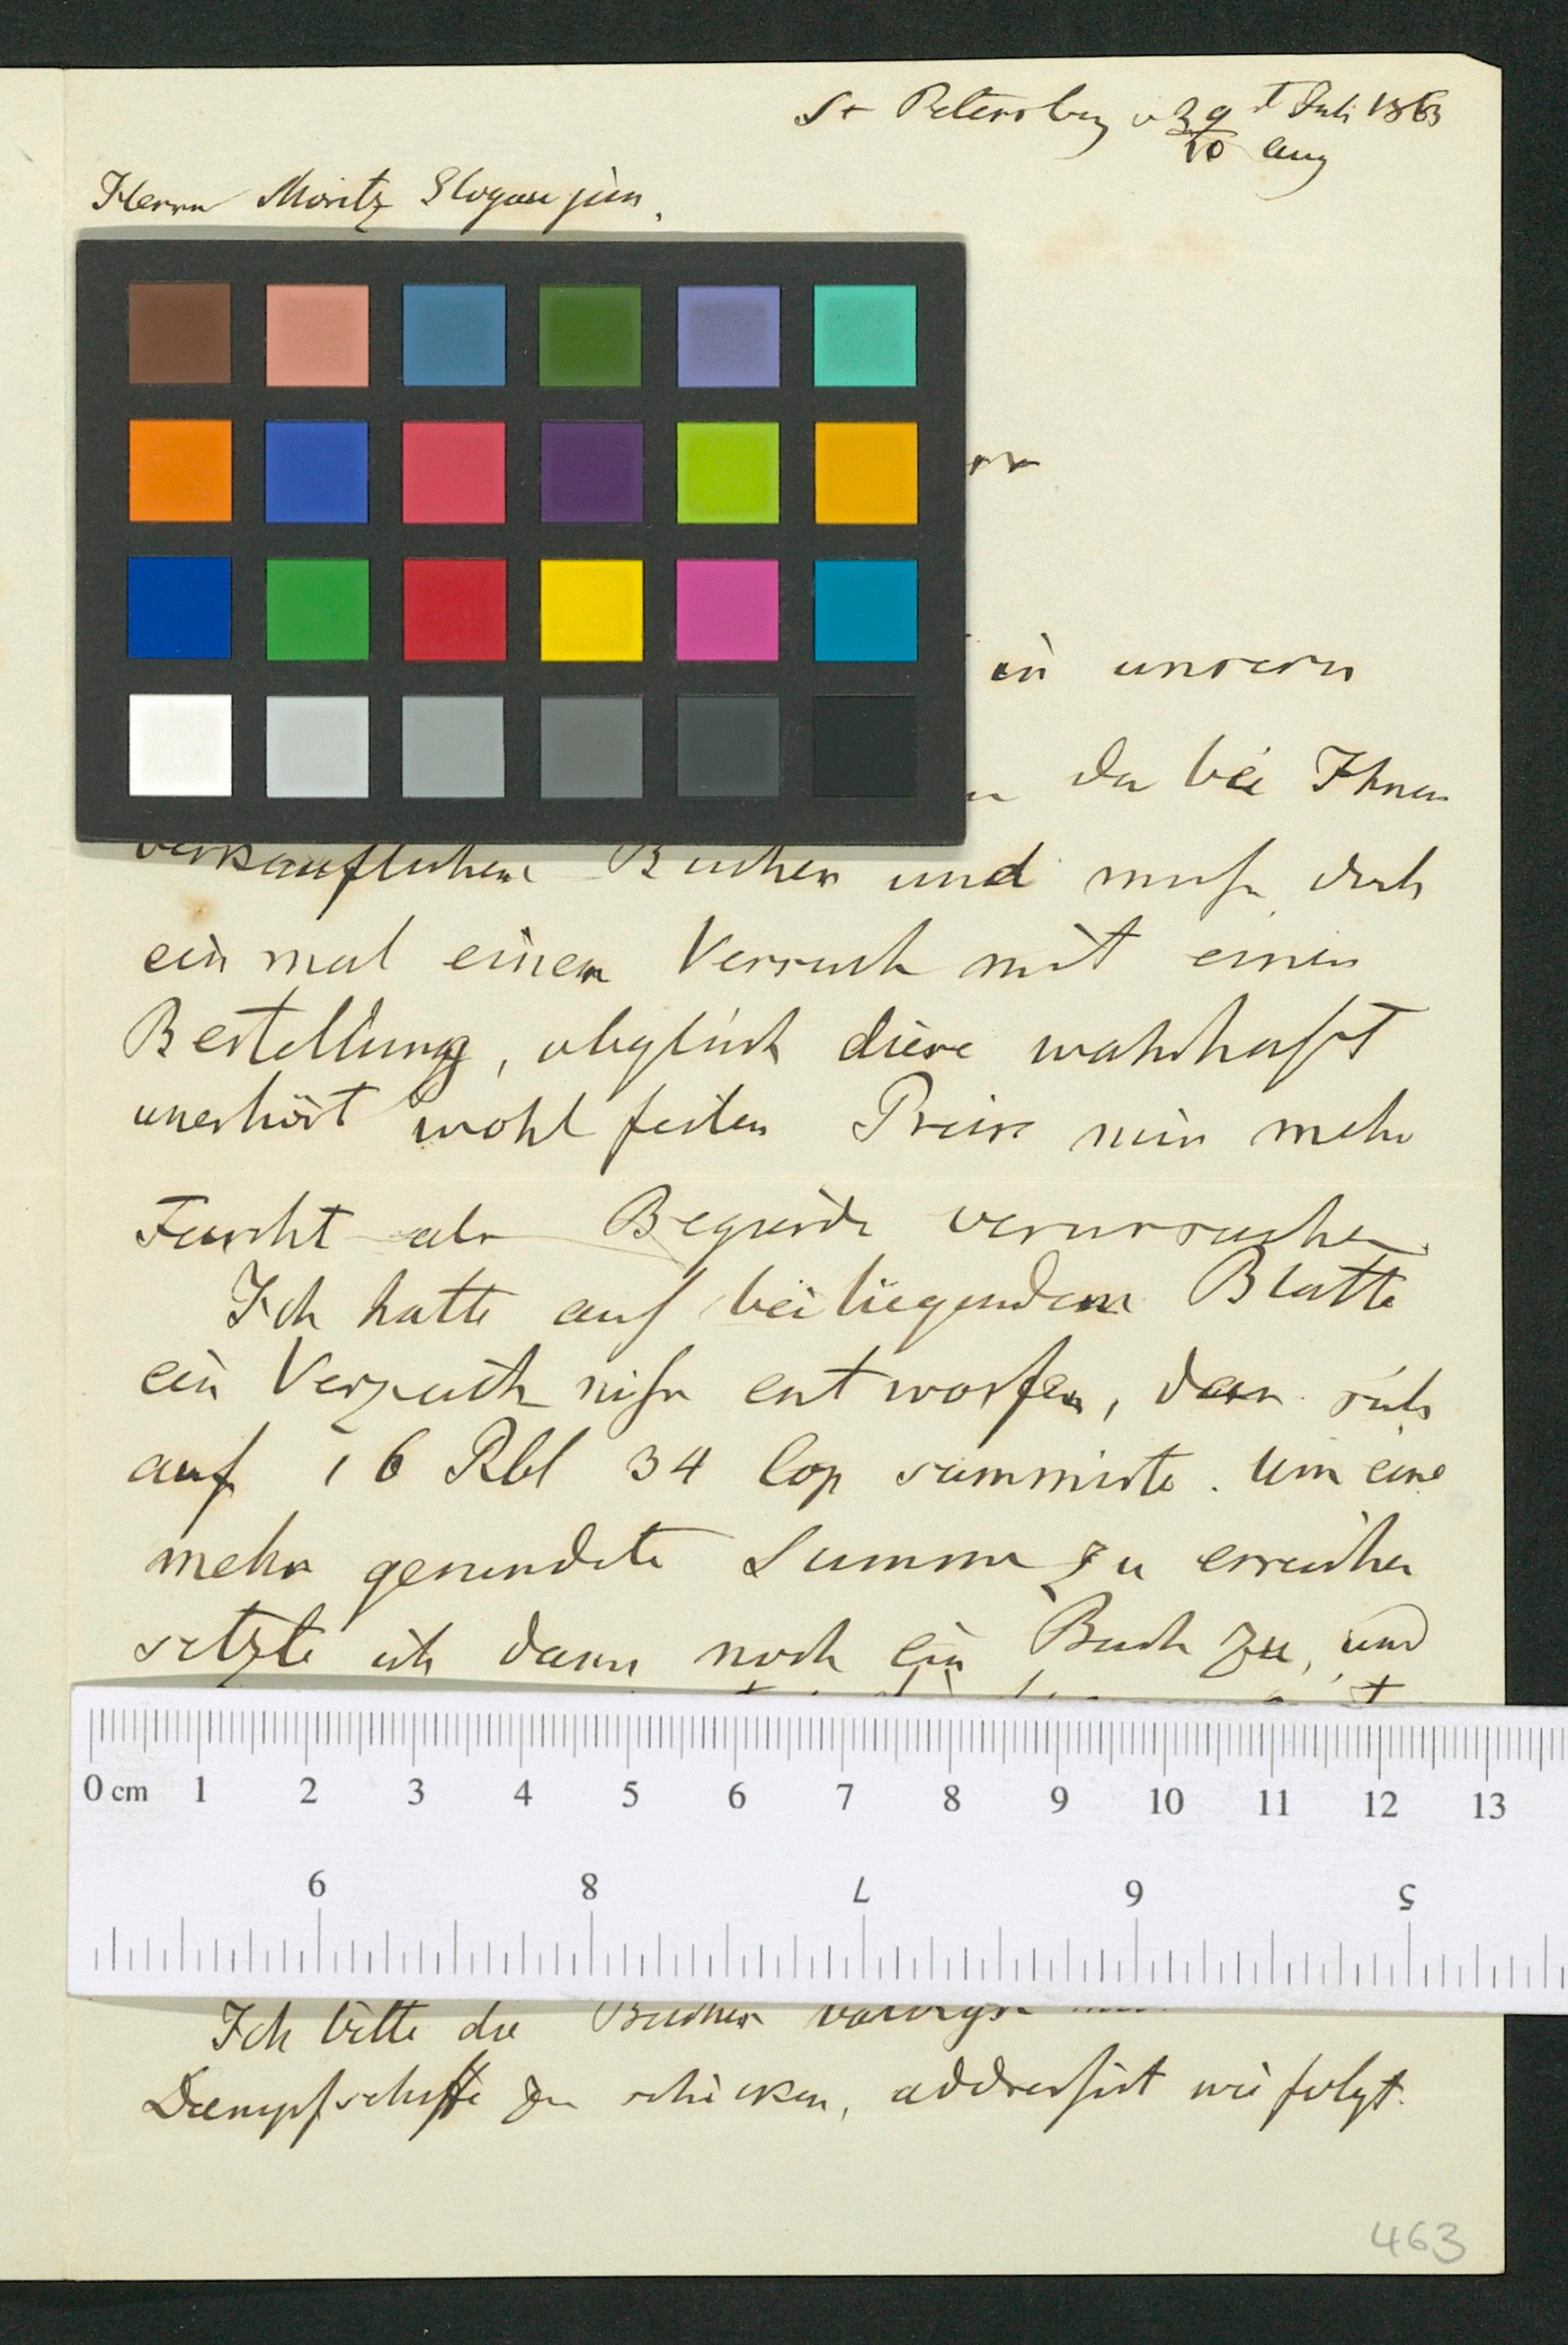 St Petersburg d 29t Juli 1863
10 Aug
Herrn Moritz Glogau jun.
in unsern
da bei Ihnen
verkäuflichen Bücher und muss doch
ein mal einen Versuch mit einer
Bestellung, obgleich diese wahrhaft
unerhört wohl feilen Preise mir mehr
Furcht als Begierde verursachen.
Ich hatte auf beiliegendem Blatte
ein Verzeich niss ent worfen, dass sich
auf 16 Rbl 34 Cop summirte. Um eine
mehr gerundete Summe zu erreichen
setzte ich dann noch ein Buch zu, und
Ich bitte die Bücher
Dampfschiffe zu schicken, addressirt wie folgt.
463
0 cm 1 2 3 4 5 6 7 8 9 10 11 12 13
9 8 7 6 5